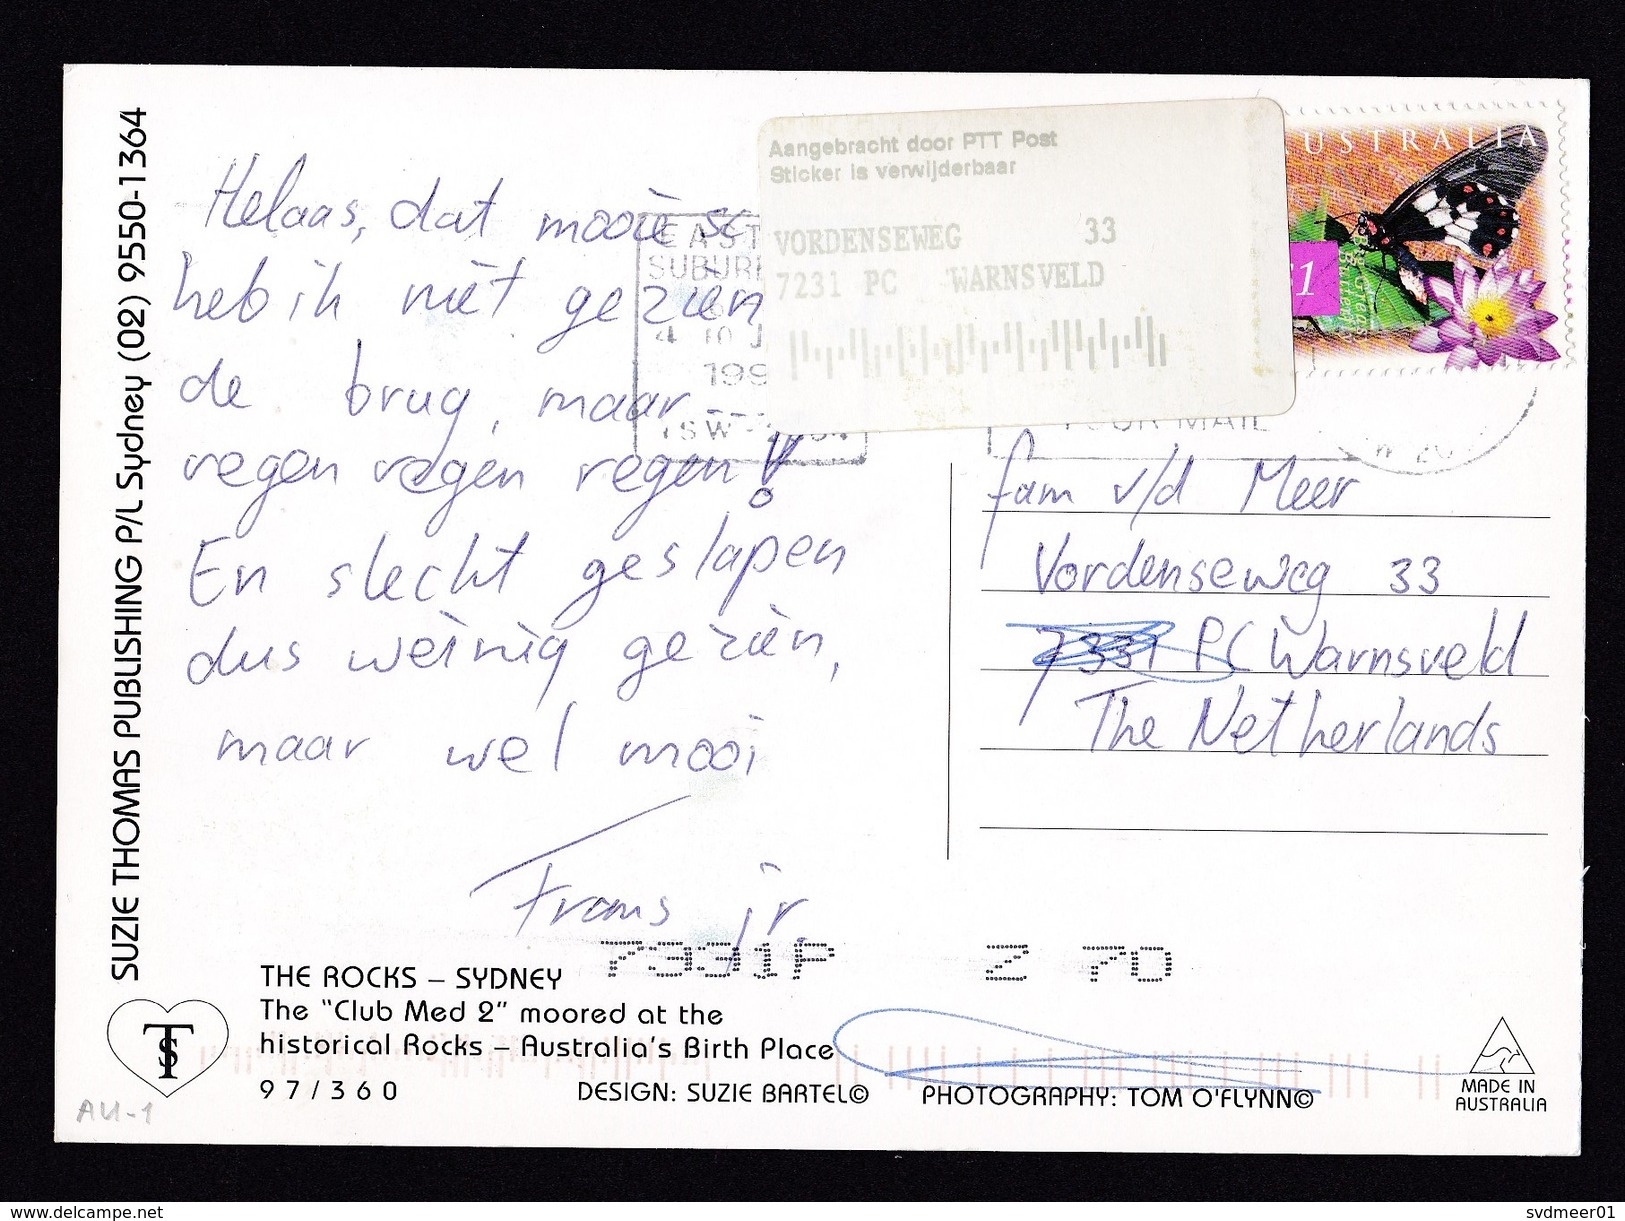 SUZIE THOMAS PUBLISHING P/L Sydney (02) 9550-1364
Helaas, dat mooie
heb ik niet gezien
de brug, maar
regen regen regen!
En slecht geslapen
dus weinig gezien,
maar wel mooi
Frans jr.
EAST
SUBUR
199
Aangebracht door PTT Post
Sticker is verwijderbaar
VORDENSEWEG 33
7231 PC WARNSVELD
USTRALIA
$1
YOUR MAIL
fam v/d Meer
Vordenseweg 33
7331 PC Warnsveld
The Netherlands
7391P Z 70
THE ROCKS – SYDNEY
The "Club Med 2" moored at the
historical Rocks – Australia's Birth Place
97/360 DESIGN: SUZIE BARTEL© PHOTOGRAPHY: TOM O'FLYNN©
MADE IN
AUSTRALIA
AU-1
www.delcampe.net
svdmeer01